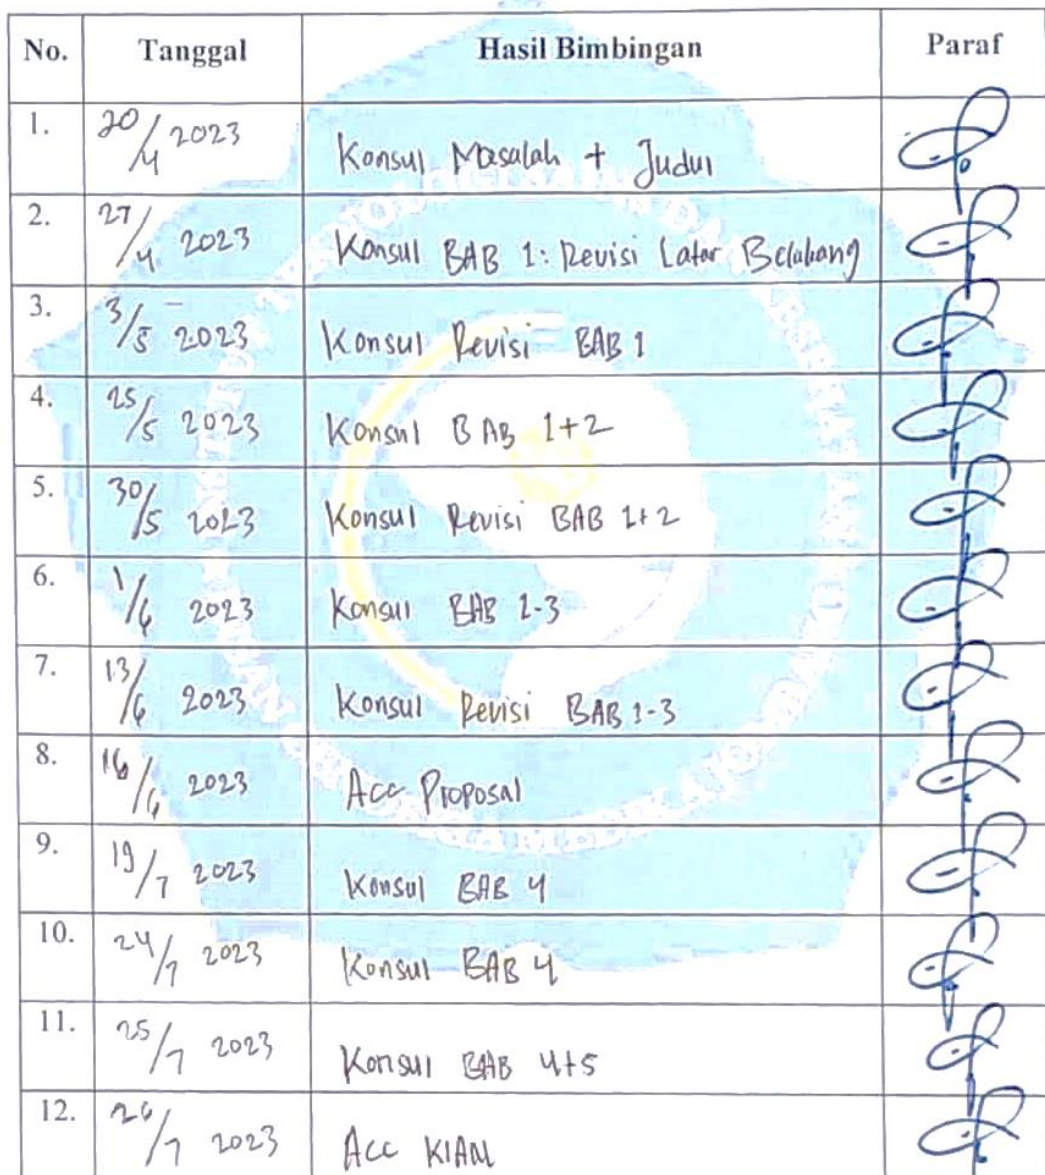 No. Tanggal Hasil Bimbingan Paraf
1. 20/4 2023 Konsul Masalah + Judul
2. 27/4 2023 Konsul BAB 1: Revisi Latar Belakang
3. 3/5 2023 Konsul Revisi BAB 1
4. 25/5 2023 Konsul BAB 1+2
5. 30/5 2023 Konsul Revisi BAB 1+2
6. 1/6 2023 Konsul BAB 1-3
7. 13/6 2023 Konsul Revisi BAB 1-3
8. 16/6 2023 Acc Proposal
9. 19/7 2023 Konsul BAB 4
10. 24/7 2023 Konsul BAB 4
11. 25/7 2023 Konsul BAB 4+5
12. 26/7 2023 Acc KIAN